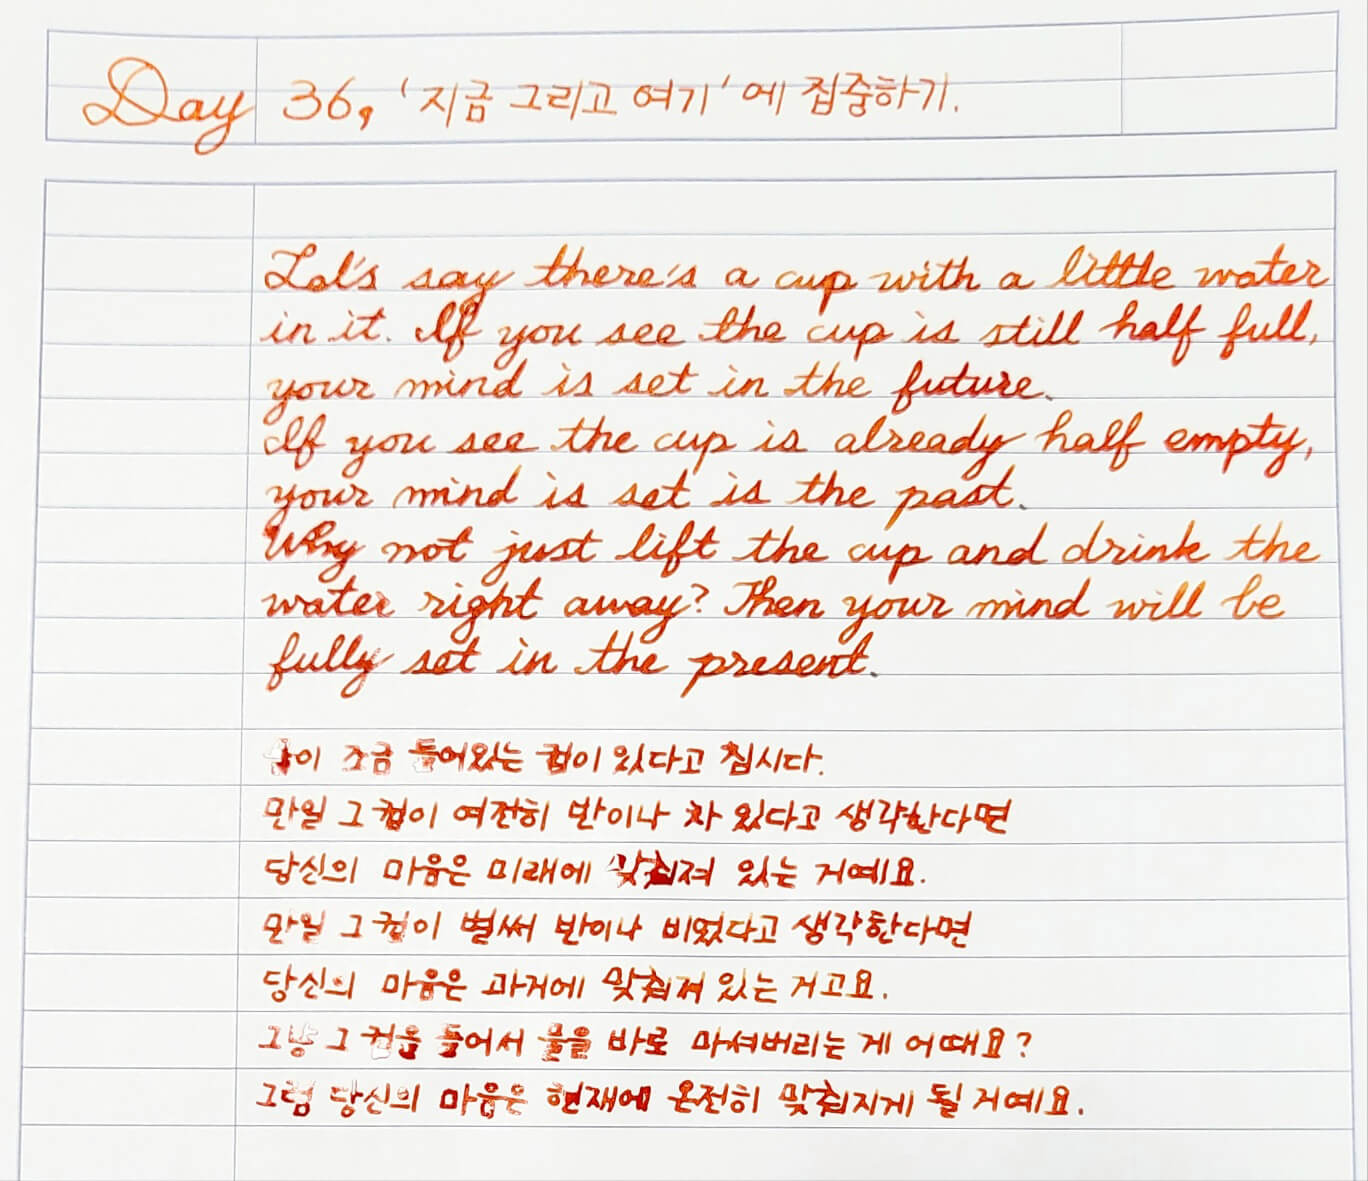 Day 36, '지금 그리고 여기'에 집중하기.
Let's say there's a cup with a little water
in it. If you see the cup is still half full,
your mind is set in the future.
If you see the cup is already half empty,
your mind is set is the past.
Why not just lift the cup and drink the
water right away? Then your mind will be
fully set in the present.
물이 조금 들어있는 컵이 있다고 칩시다.
만일 그 컵이 여전히 반이나 차 있다고 생각한다면
당신의 마음은 미래에 맞춰져 있는 거예요.
만일 그 컵이 벌써 반이나 비었다고 생각한다면
당신의 마음은 과거에 맞춰져 있는 거고요.
그냥 그 컵을 들어서 물을 바로 마셔버리는 게 어때요?
그럼 당신의 마음은 현재에 온전히 맞춰지게 될 거예요.